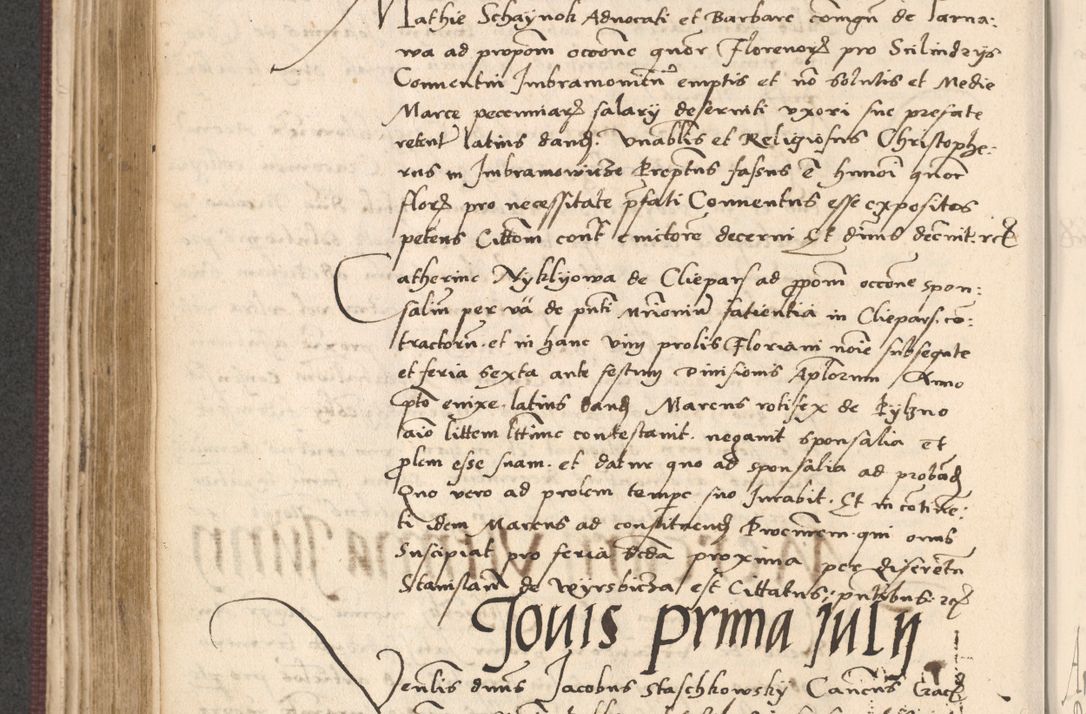 Mathie Schaynok Advocati et Barbare coniugu de Tarna-
wa ad propom occone quor Florenorz pro Scilindrijs
Conventui Imbramovicen emptis et no solutis et Medie
Marce pecuniarz salary deserviti uxori sue prefate
latius dand. Venablis et Religiosus Christophe-
rus in Imbramowicze Preptus fassus e huiusmodi quor
florz pro necessitate pfati Conventus esse expositos
petens Cittom cont emictore decerni Et dnus decrevit rcz
Catherine Nyklyowa de Clepars ad ppom occone spon-
saliu per va de pnti in Cleparz co-
tractoru et in hanc vim prolis Floriani noie subsequte
et feria sexta ante festum Divisionis Aplorum Anno
pto enixe latius dand Marcus rotifex de Rybno
aio littem lttime contestavit negavit sponsalia et
plem esse suam et datur quo ad sponsalia ad proband
Quo vero ad prolem tempe suo Iurabit Et in cotine-
ti idem Marcus ad constituend Procuratorem qui onus
Suscipiat pro feria scda proxima per discretu
Stanislau de Wyrsbicza est Cittatus pntibus rcz
Jovis prima july
Venlis dnus Jacobus Staschkowsky Canicus Crac